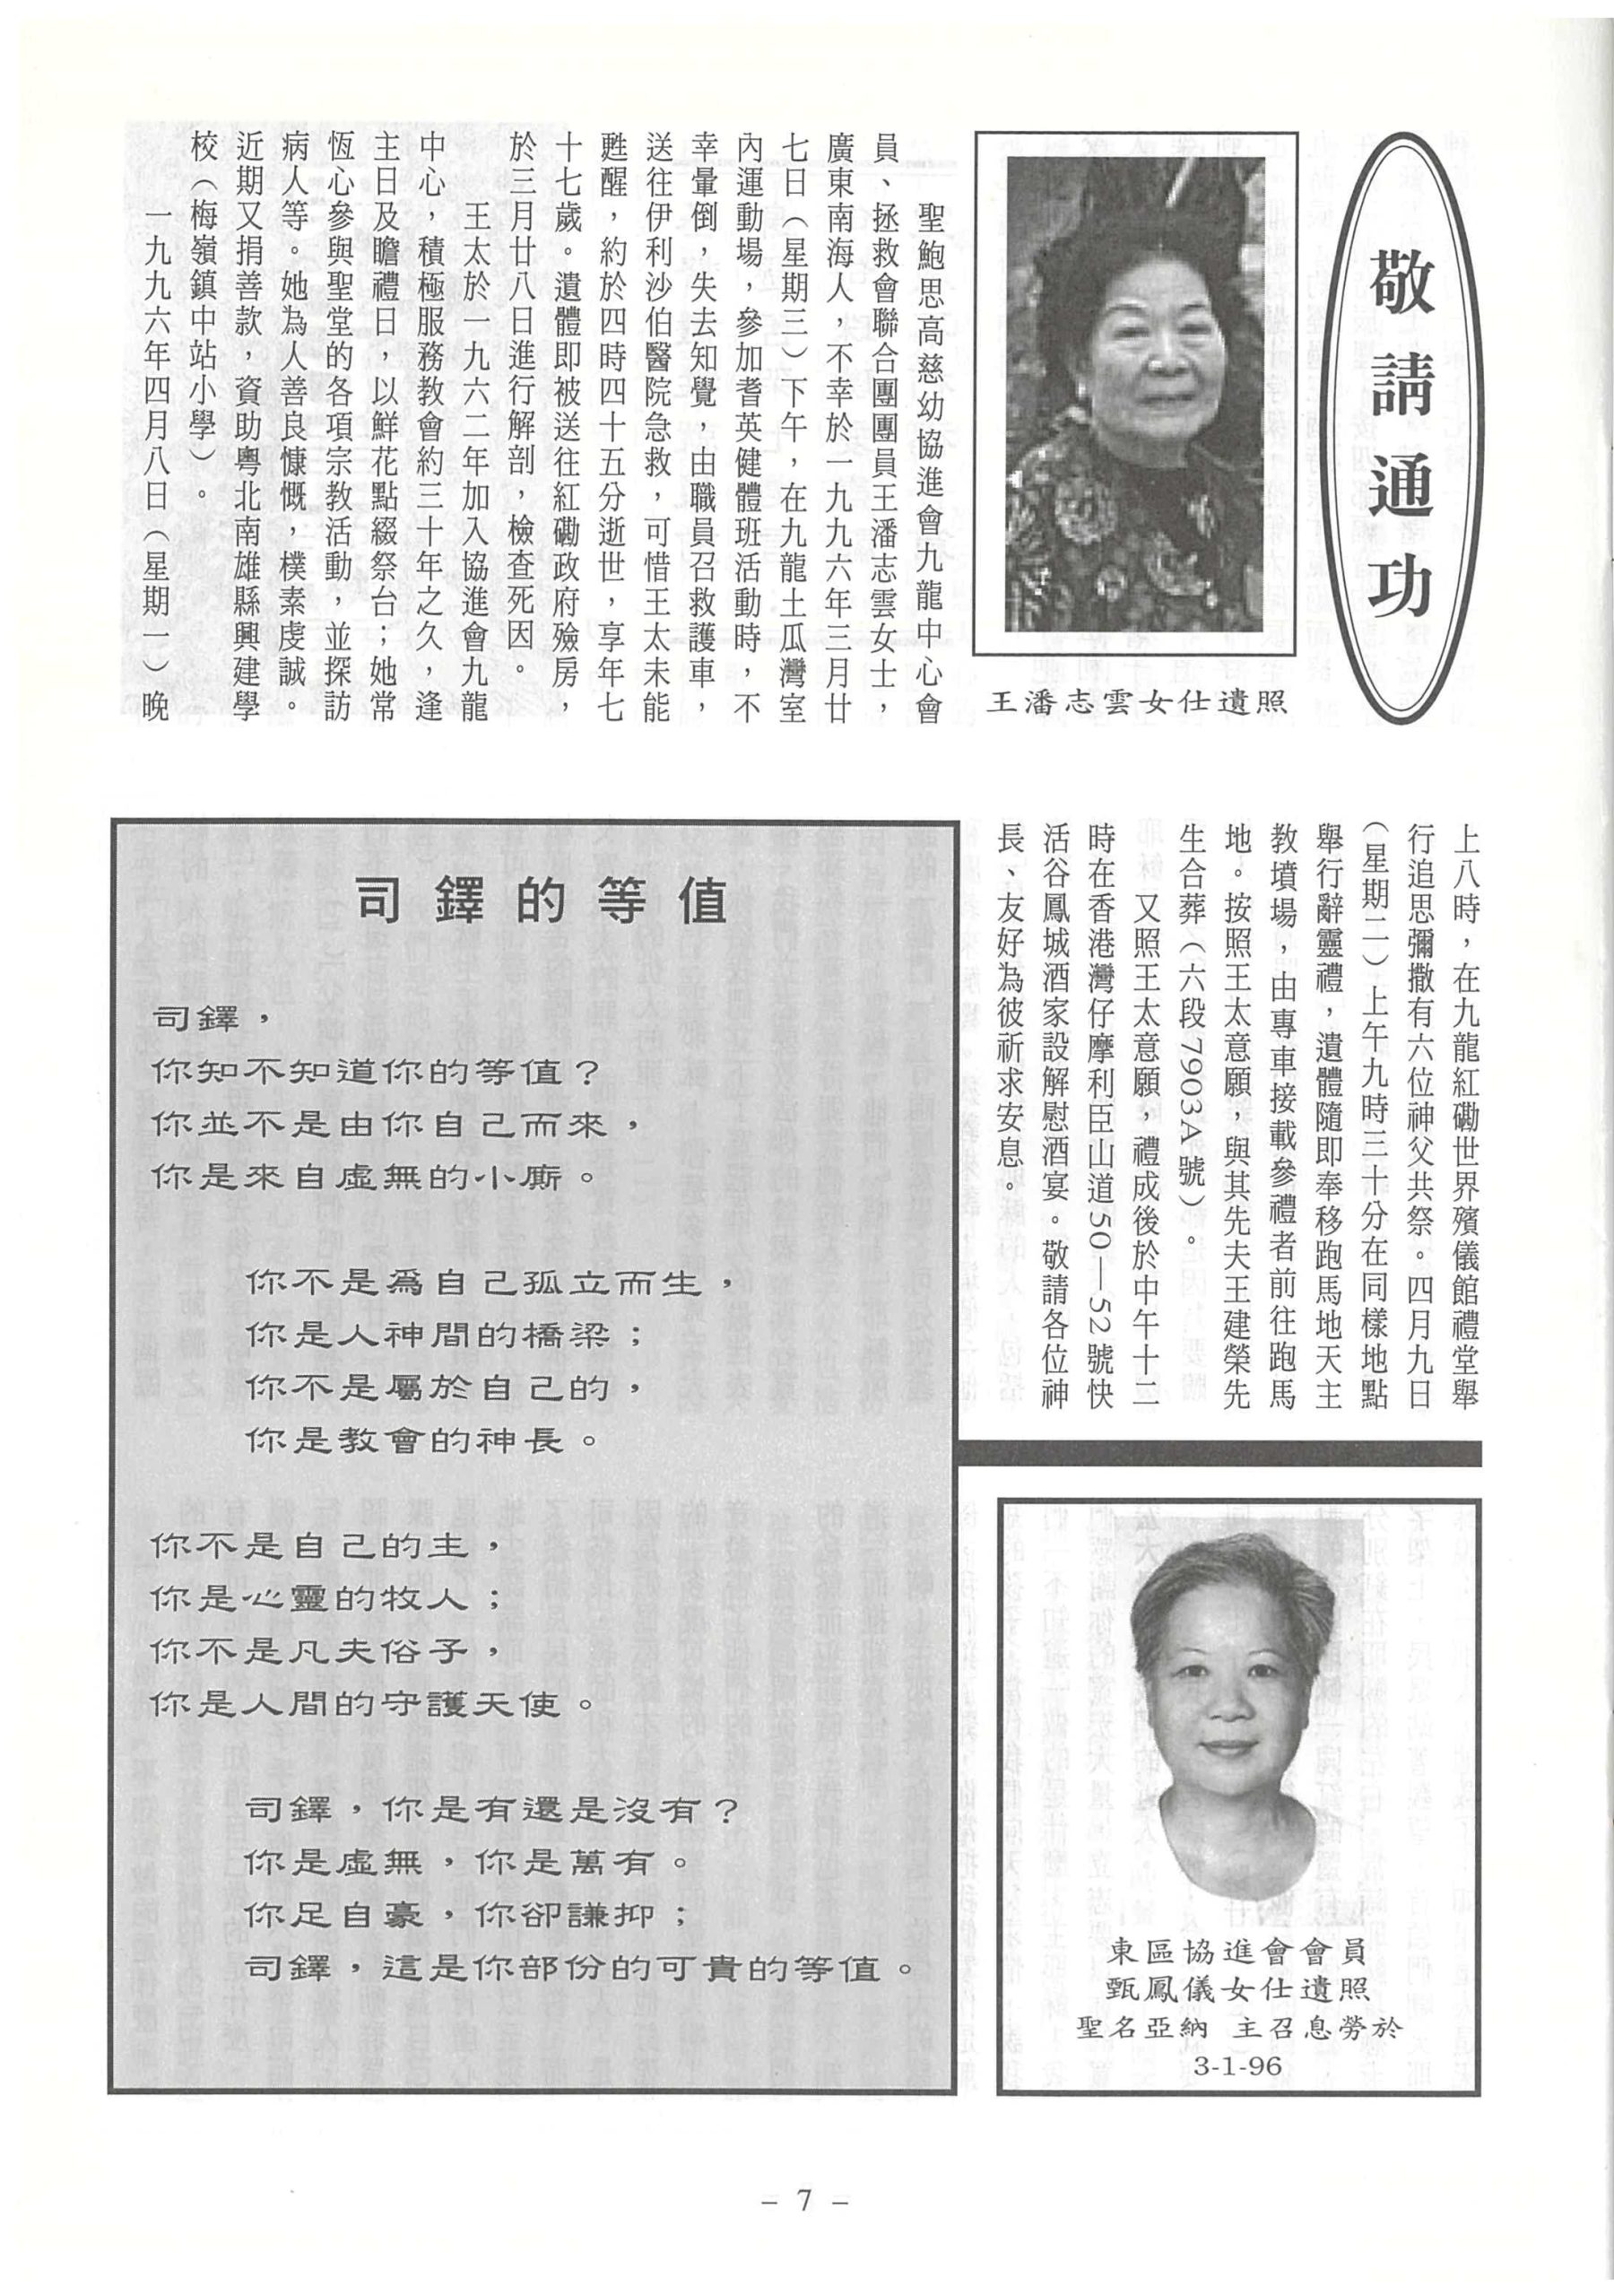 敬請通功
王潘志雲女仕遺照
聖鮑思高慈幼協進會九龍中心會
員、拯救會聯合團團員王潘志雲女士，
廣東南海人，不幸於一九九六年三月廿
七日（星期三）下午，在九龍土瓜灣室
內運動場，參加耆英健體班活動時，不
幸暈倒，失去知覺，由職員召救護車，
送往伊利沙伯醫院急救，可惜王太未能
甦醒，約於四時四十五分逝世，享年七
十七歲。遺體即被送往紅磡政府殮房，
於三月廿八日進行解剖，檢查死因。
王太於一九六二年加入協進會九龍
中心，積極服務教會約三十年之久，逢
主日及瞻禮日，以鮮花點綴祭台；她常
恆心參與聖堂的各項宗教活動，並探訪
病人等。她為人善良慷慨，樸素虔誠。
近期又捐善款，資助粵北南雄縣興建學
校（梅嶺鎮中站小學）。
一九九六年四月八日（星期一）晚
上八時，在九龍紅磡世界殯儀館禮堂舉
行追思彌撒有六位神父共祭。四月九日
（星期二）上午九時三十分在同樣地點
舉行辭靈禮，遺體隨即奉移跑馬地天主
教墳場，由專車接載參禮者前往跑馬
地。按照王太意願，與其先夫王建榮先
生合葬（六段7903A號）。
又照王太意願，禮成後於中午十二
時在香港灣仔摩利臣山道50—52號快
活谷鳳城酒家設解慰酒宴。敬請各位神
長、友好為彼祈求安息。
司鐸的等值
司鐸，
你知不知道你的等值？
你並不是由你自己而來，
你是來自虛無的小廝。
你不是爲自己孤立而生，
你是人神間的橋梁；
你不是屬於自己的，
你是教會的神長。
你不是自己的主，
你是心靈的牧人；
你不是凡夫俗子，
你是人間的守護天使。
司鐸，你是有還是沒有？
你是虛無，你是萬有。
你足自豪，你卻謙抑；
司鐸，這是你部份的可貴的等值。
東區協進會會員
甄鳳儀女仕遺照
聖名亞納 主召息勞於
3-1-96
– 7 –